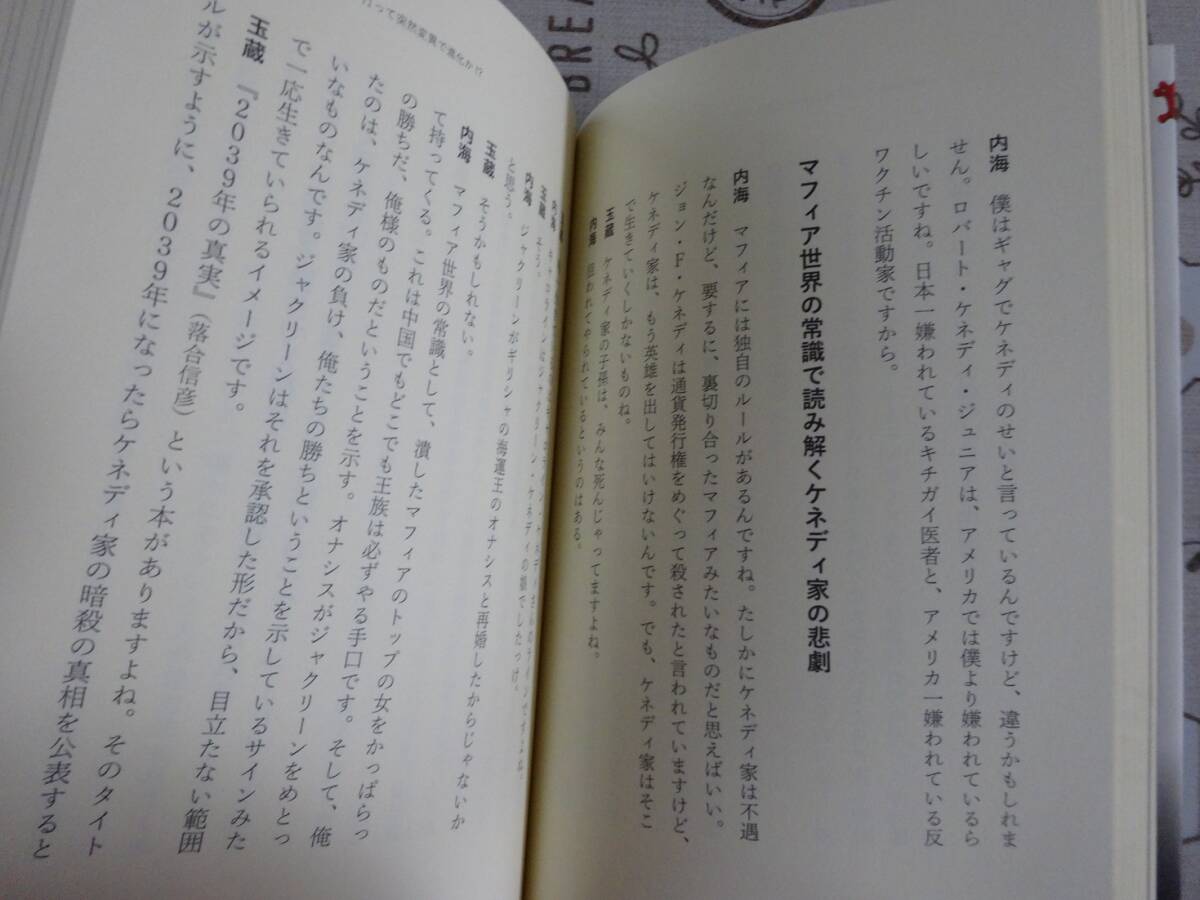 内海　僕はギャグでケネディのせいと言っているんですけど、違うかもしれま
せん。ロバート・ケネディ・ジュニアは、アメリカでは僕より嫌われているら
しいですね。日本一嫌われているキチガイ医者と、アメリカ一嫌われている反
ワクチン活動家ですから。
マフィア世界の常識で読み解くケネディ家の悲劇
内海　マフィアには独自のルールがあるんですね。たしかにケネディ家は不遇
なんだけど、要するに、裏切り合ったマフィアみたいなものだと思えばいい。
ジョン・F・ケネディは通貨発行権をめぐって殺されたと言われていますけど、
ケネディ家は、もう英雄を出してはいけないんです。でも、ケネディ家はそこ
で生きていくしかないものね。
玉蔵　ケネディ家の子孫は、みんな死んじゃってますよね。
内海　狙われてやられているというのはある。
玉蔵　そう。
内海　ジャクリーンがギリシャの海運王のオナシスと再婚したからじゃないか
と思う。
玉蔵　そうかもしれない。
内海　マフィア世界の常識として、潰したマフィアのトップの女をかっぱらっ
て持ってくる。これは中国でもどこでも王族は必ずやる手口です。そして、俺
の勝ちだ、俺様のものだということを示す。オナシスがジャクリーンをめとっ
たのは、ケネディ家の負け、俺たちの勝ちということを示しているサインみた
いなものなんです。ジャクリーンはそれを承認した形だから、目立たない範囲
で一応生きていられるイメージです。
玉蔵　『2039年の真実』（落合信彦）という本がありますよね。そのタイト
ルが示すように、2039年になったらケネディ家の暗殺の真相を公表すると
って突然変異で進化か!?
BREA